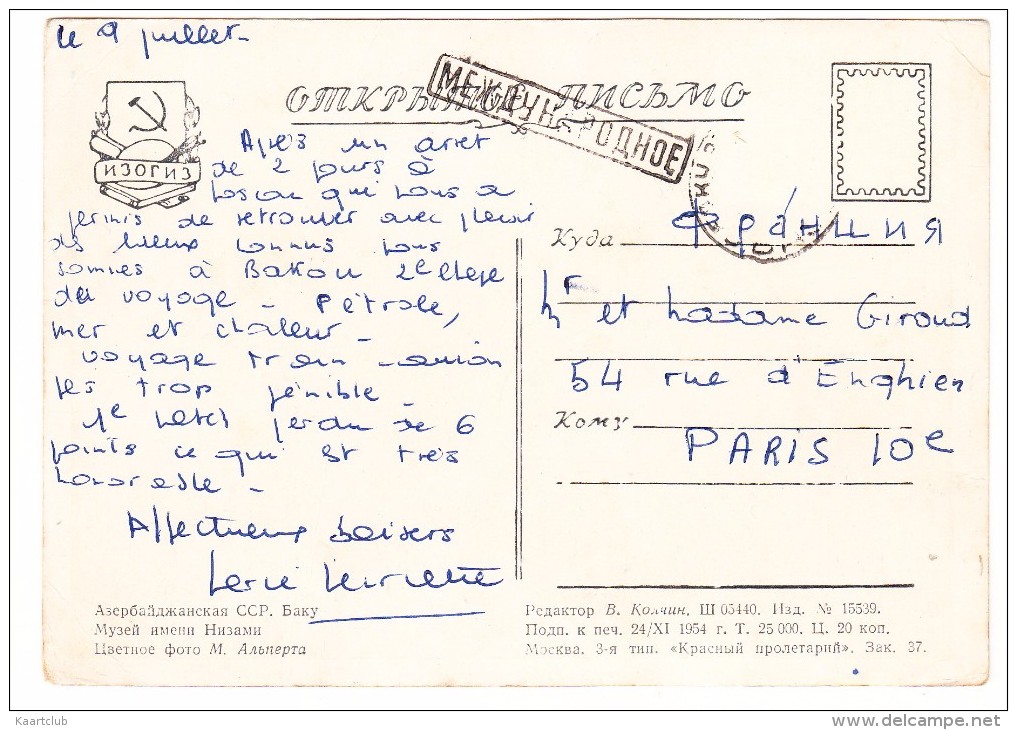 Le 9 juillet-
ОТКРЫТОЕ ПИСЬМО
МЕЖДУНАРОДНОЕ
ИЗОГИЗ
Après un arret
de 2 jours à
qui nous a
permis de retrouver avec plaisir
des lieux connus nous
sommes à Bakou 2e etape
du voyage - Pétrole,
mer et chaleur -
voyage train - avion
pas trop pénible -
1e match perdu de 6
points ce qui est très
honorable -
Affectueux baisers
Куда
Франция
Mr et Madame Giroud
54 rue d'Enghien
Кому
PARIS 10e
Азербайджанская ССР. Баку
Музей имени Низами
Цветное фото М. Альперта
Редактор В. Колчин. Ш 05440. Изд. № 15539.
Подп. к печ. 24/XI 1954 г. Т. 25 000. Ц. 20 коп.
Москва. 3-я тип. «Красный пролетарий». Зак. 37.
Kaartclub
www.delcampe.net